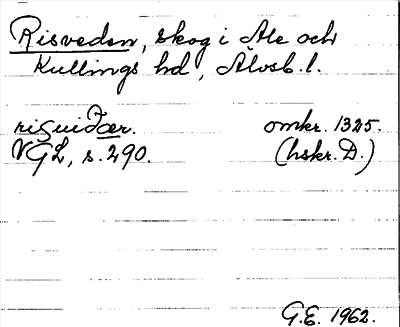 Risveden, skog i Ale och
Kullings hd, Älvsb. l.
risuiðær. omkr. 1325.
VGL, s. 290. (hskr. D.)
G.E. 1962.